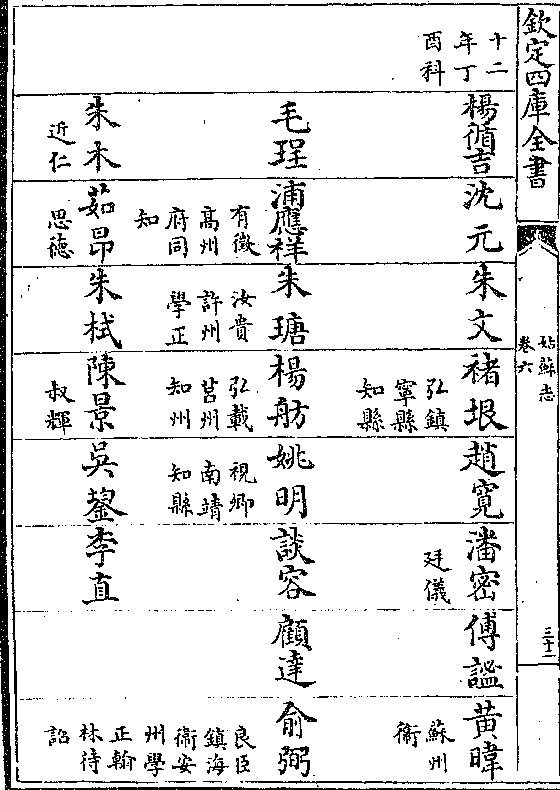 欽定四庫全書
姑蘇志
卷六
三十二
十二
年丁
酉科
楊循吉
沈元
朱文
褚垠
弘鎮
寧縣
知縣
趙寬
潘密
廷儀
傅謐
黃暐
蘇州
衞
毛珵
浦應祥
有徵
高州
府同
知
朱瑭
汝貴
許州
學正
楊舫
弘載
莒州
知州
姚明
視卿
南靖
知縣
談容
顧達
俞弼
良臣
鎮海
衞安
州學
正翰
林待
詔
朱木
近仁
茹昂
思德
朱栻
陳景
叔輝
吳鋆
李直